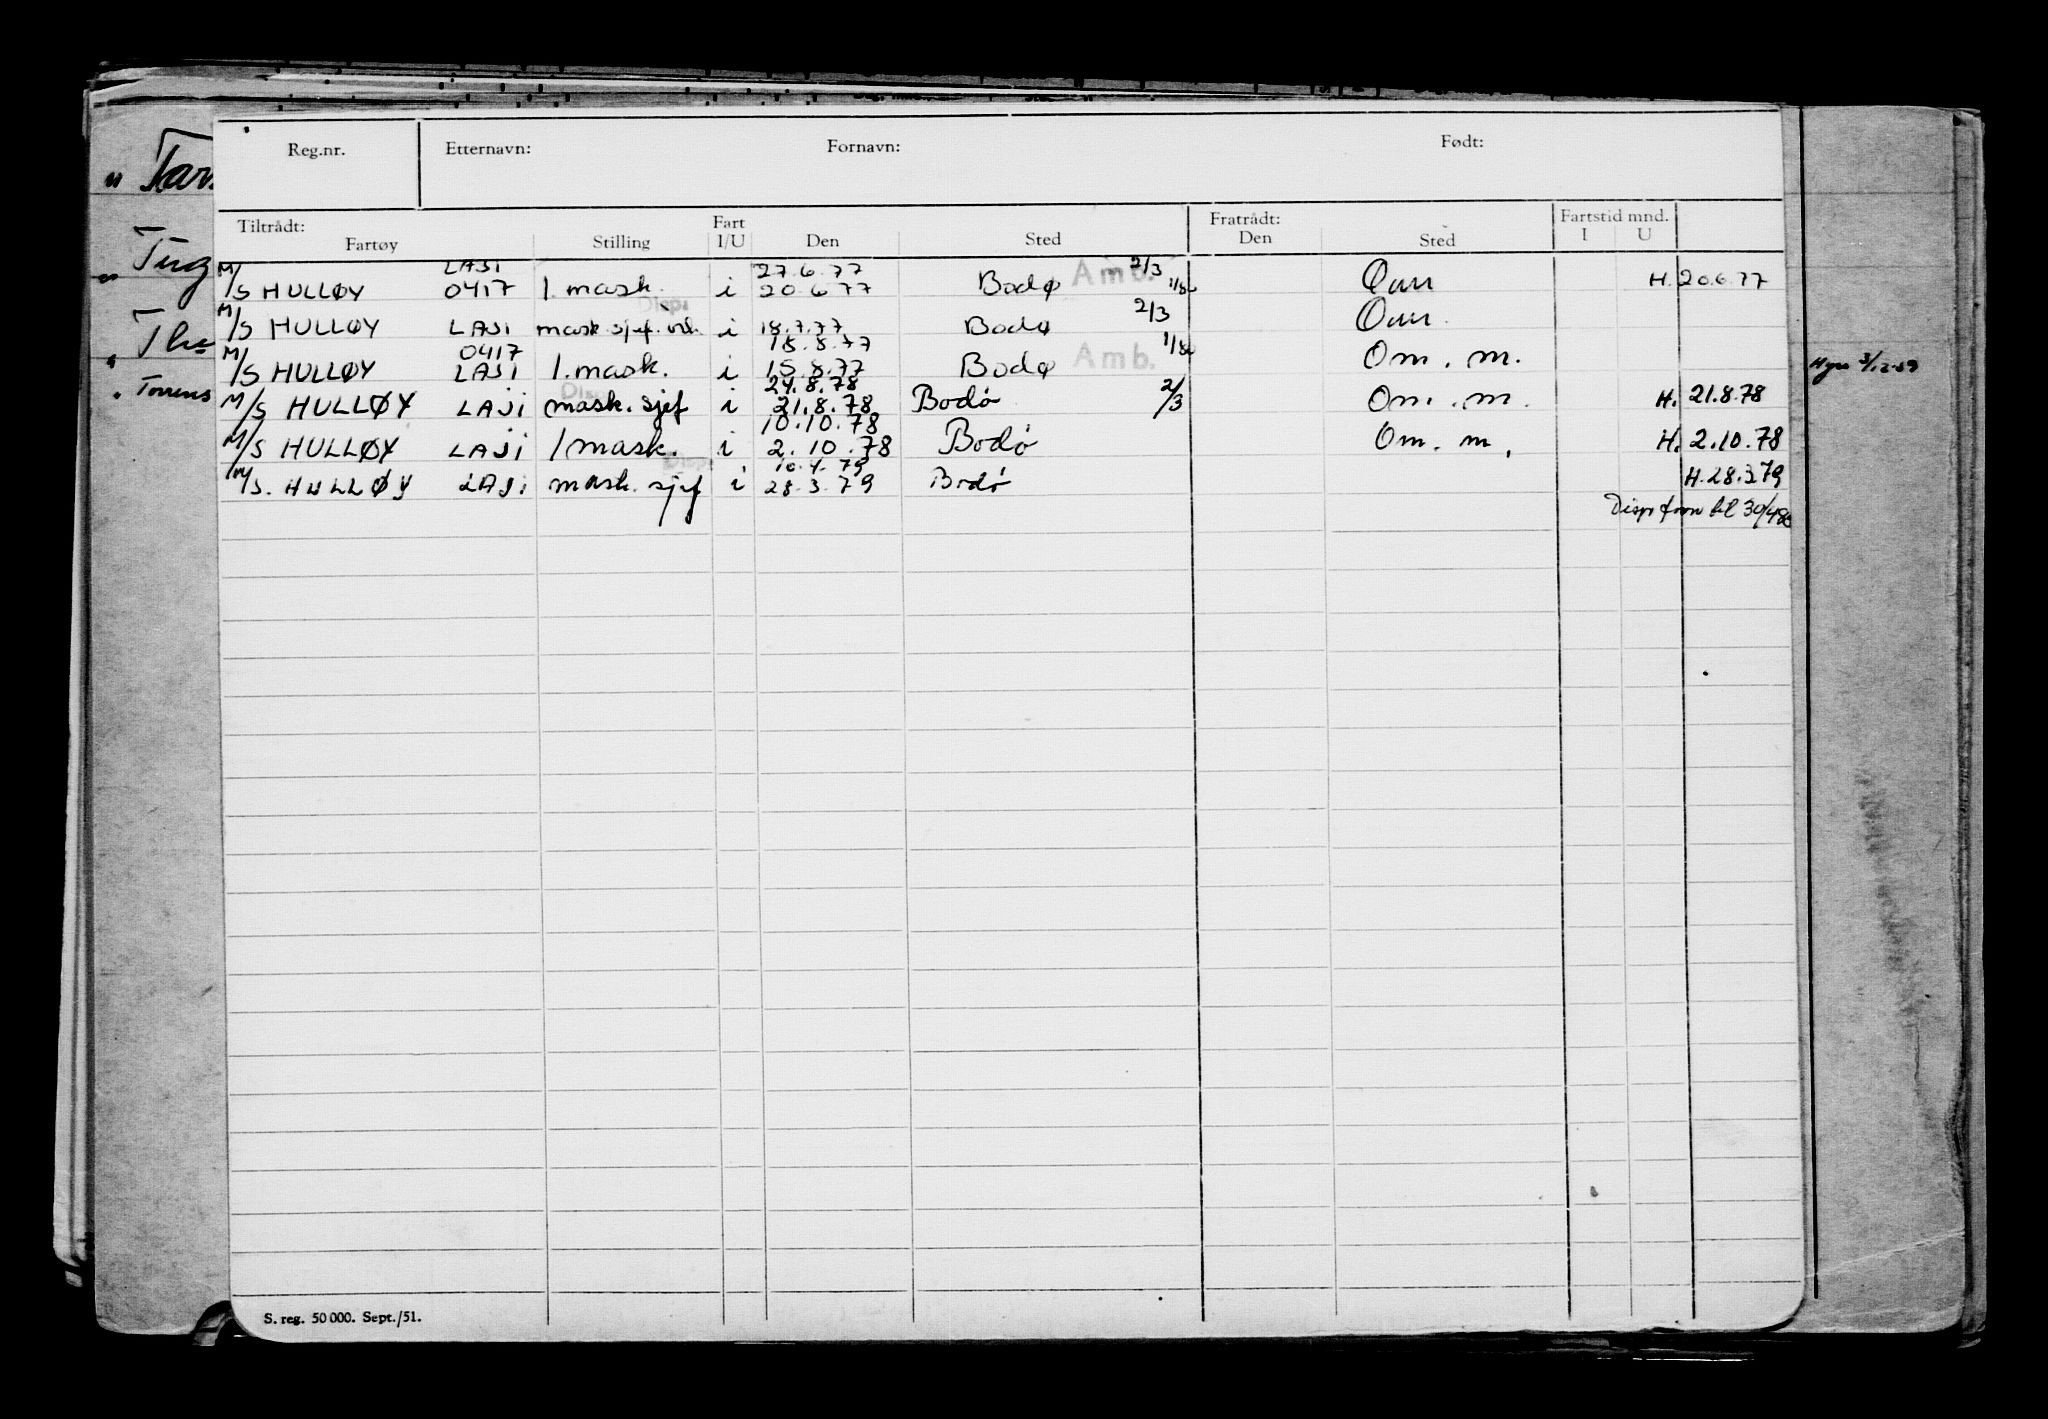 Reg.nr. Etternavn: Fornavn: Født:
Tiltrådt: Fartøy Stilling Fart I/U Den Sted Fratrådt: Den Sted Fartstid mnd. I U
LAJI 27.6.77 2/3
M/S HULLØY 0417 1. mask. i 20.6.77 Bodø Amb. H. 20.6.77
Disp. 2/3
M/S HULLØY LAJI mask. sjef. i 18.7.77 Bodø
0417 18.8.77
M/S HULLØY LAJI 1. mask. i 15.8.77 Bodø Amb. Om. m.
Disp. 24.8.78
M/S HULLØY LAJI mask. sjef i 21.8.78 Bodø 2/3 Om. m. H. 21.8.78
10.10.78
M/S HULLØY LAJI 1 mask. i 2.10.78 Bodø Om. m. H. 2.10.78
Disp. 10.4.79
M/S. HULLØY LAJI mask. sjef i 28.3.79 Bodø H. 28.3.79
Disp from til 30/4 80
" Tar
" Torrens
S. reg. 50 000. Sept./51.